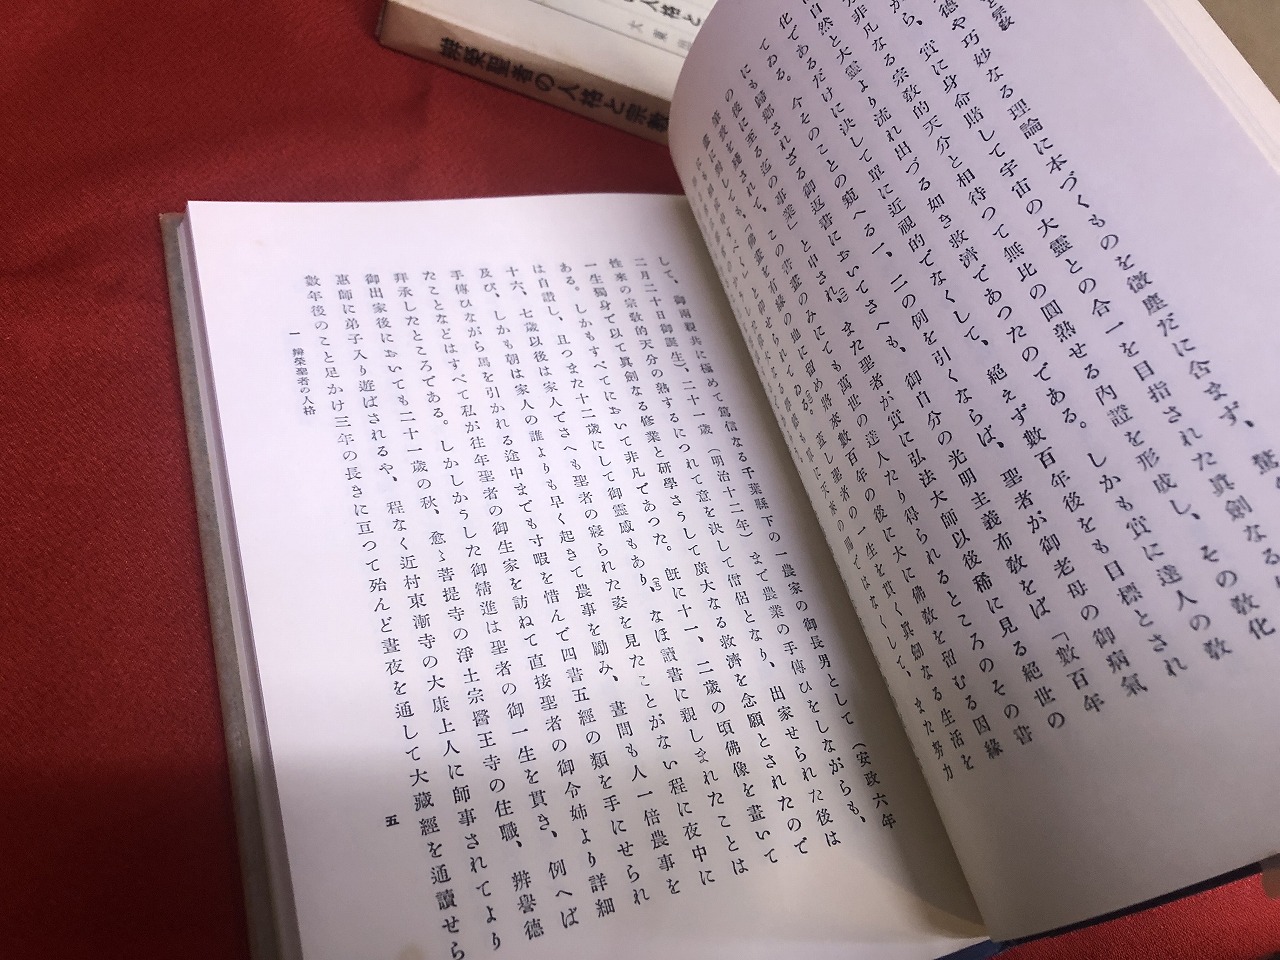 辨榮聖者の人格と宗教
の人格と
大東出
と宗教
徳や巧妙なる理論に本づくものを微塵だに含まず、
から、實に身命賭して宇宙の大靈との合一を目指された眞創なる
非凡なる宗教的天分と相待つて無比の圓熟せる內證を形成し、その敎化
自然と大靈より流れ出づる如き救濟であつたのである。しかも實に達人の敎
化であるだけに決して單に近視的でなくして、絕えず數百年後をも目標とされ
てゐる。今そのことの窺へる一、二の例を引くならば、聖者が御老母の御病氣
にも歸鄕されざる御返書においてさへも、御自分の光明主義布敎をば「數百年
の後に至る迄の事業」と申され、また聖者が實に弘法大師以後稀に見る絕世の
筆彼を殘されて、この書畫のみにても萬世の達人たり得られるところのその書
して、御兩親共に極めて篤信なる千葉縣下の一農家の御長男として(安政六年
二月二十日御誕生)、二十一歲(明治十二年)まで農業の手傳ひをしながらも、
性來の宗敎的天分の熟するにつれて意を決して僧侶となり、出家せられた後は
一生獨身で以て眞創なる修業と硏學さうして廣大なる救濟を念願とされたので
ある。しかもすべてにおいて非凡であつた。旣に十一、二歲の頃佛像を畫いて
は自讃し、且つまた十二歲にして御靈感もあり、なほ讀書に親しまれたことは
十六、七歲以後は家人でさへも聖者の寢られた姿を見たことがない程に夜中に
及び、しかも朝は家人の誰よりも早く起きて農事を勵み、晝間も人一倍農事を
手傳ひながら馬を引かれる途中までも寸暇を惜んで四書五經の類を手にせられ
たことなどはすべて私が往年聖者の御生家を訪ねて直接聖者の御令姉より詳細
拜承したところである。しかしかうした御精進は聖者の御一生を貫き、例へば
御出家後においても二十一歲の秋、愈〻菩提寺の淨土宗醫王寺の住職、辨譽德
惠師に弟子入り遊ばされるや、程なく近村東漸寺の大康上人に師事されてより
數年後のこと足かけ三年の長きに亘つて殆んど晝夜を通して大藏經を通讀せら
一 辨榮聖者の人格
五